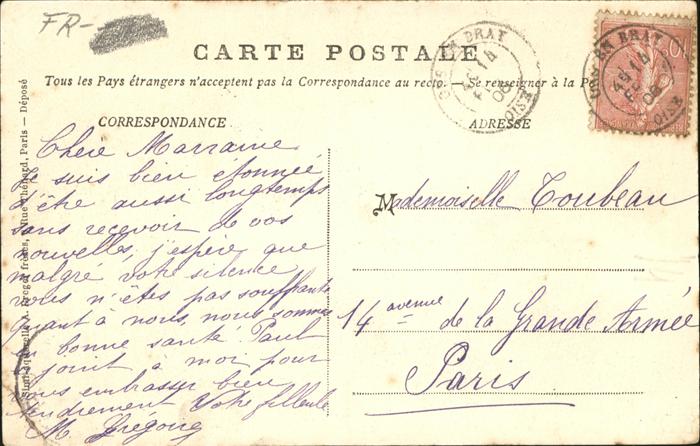 FR-
CARTE POSTALE
Tous les Pays étrangers n'acceptent pas la Correspondance au recto. | Se renseigner à la P
CORRESPONDANCE
Chere Marraine
Je suis bien étonnée
d'être aussi longtemps
sans recevoir de vos
nouvelles, j'espère que
malgre votre silence
vous n'êtes pas souffrante
Quant à nous, nous sommes
en bonne santé, Paul
se joint à moi pour
vous embrasser bien
tendrement Votre filleule
M. Grégoire
ADRESSE
Mademoiselle Toubeau
14 avenue de la Grande Armée
Paris
EN BRAY
OISE
EN BRAY
OISE
10
frères, Rue Thénard, Paris — Déposé